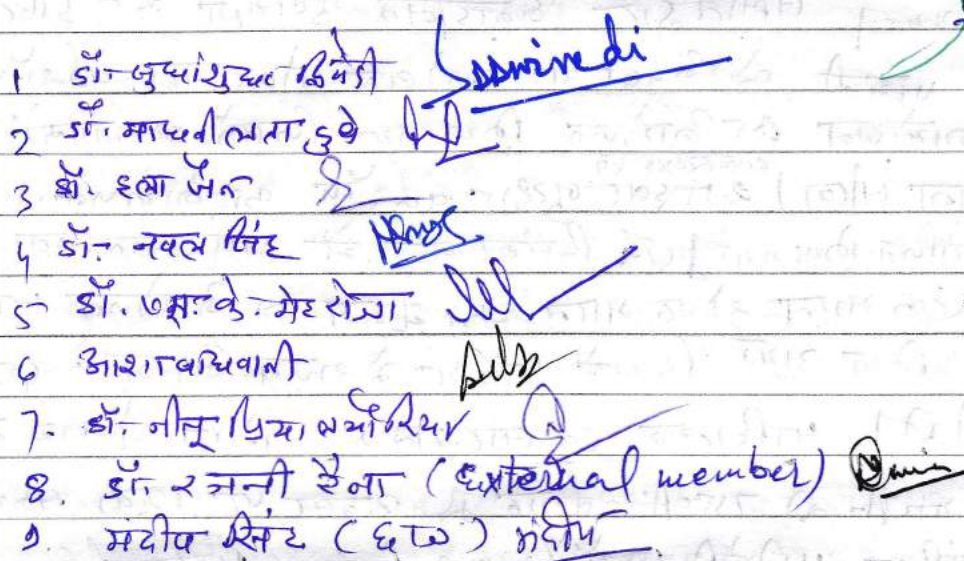 1 डॉ. सुधांशुधर द्विवेदी SSDwivedi
2 डॉ. माधवी लता दुबे
3 डॉ. इला जैन
4 डॉ. नवल सिंह
5 डॉ. एम. के. मेहरोत्रा
6 आशा वाधवानी
7. डॉ. नीतू प्रिया
8. डॉ. रजनी रैना (External member)
9 संदीप सिंह (छात्र) संदीप